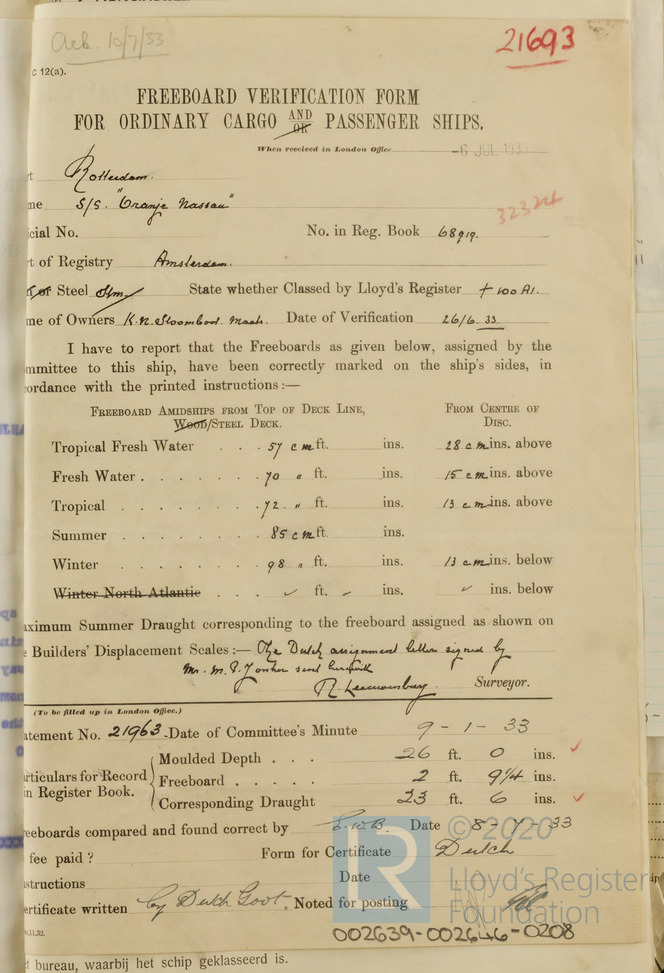 Ack. 10/7/33
21693
C 12(a).
FREEBOARD VERIFICATION FORM
FOR ORDINARY CARGO AND OR PASSENGER SHIPS.
When received in London Office 6 JUL 193
Rotterdam.
me S/S. "Oranje Nassau"
32324
cial No. No. in Reg. Book 68919.
t of Registry Amsterdam.
or Steel State whether Classed by Lloyd's Register + 100 A1.
me of Owners K.N. Stoomboot Maats. Date of Verification 26/6. 33
I have to report that the Freeboards as given below, assigned by the
mmittee to this ship, have been correctly marked on the ship's sides, in
ordance with the printed instructions:—
FREEBOARD AMIDSHIPS FROM TOP OF DECK LINE, FROM CENTRE OF
WOOD/STEEL DECK. DISC.
Tropical Fresh Water . . . 57 cm ft. ins. 28 cm ins. above
Fresh Water . . . . . . . 70 " ft. ins. 15 cm ins. above
Tropical . . . . . . . 72 " ft. ins. 13 cm ins. above
Summer . . . . . . . 85 cm ft. ins.
Winter . . . . . . . 98 " ft. ins. 13 cm ins. below
Winter North Atlantic . . . ft. ins. ins. below
aximum Summer Draught corresponding to the freeboard assigned as shown on
e Builders' Displacement Scales:— The Dutch assignment letter signed by
Mr. M. P. Jonker sent herewith
R. Leeuwenburg Surveyor.
(To be filled up in London Office.)
atement No. 21963 Date of Committee's Minute 9 - 1 - 33
Moulded Depth . . . 26 ft. 0 ins.
rticulars for Record
Freeboard . . . . . 2 ft. 9 1/4 ins.
in Register Book.
Corresponding Draught 23 ft. 6 ins.
eeboards compared and found correct by E.W.B. Date 8 - 7 - 33
fee paid ? Form for Certificate Dutch
structions Date
ertificate written by Dutch Govt. Noted for posting
© 2020
Lloyd's Register
Foundation
R
.11.32.
002639-002646-0208
t bureau, waarbij het schip geklasseerd is.